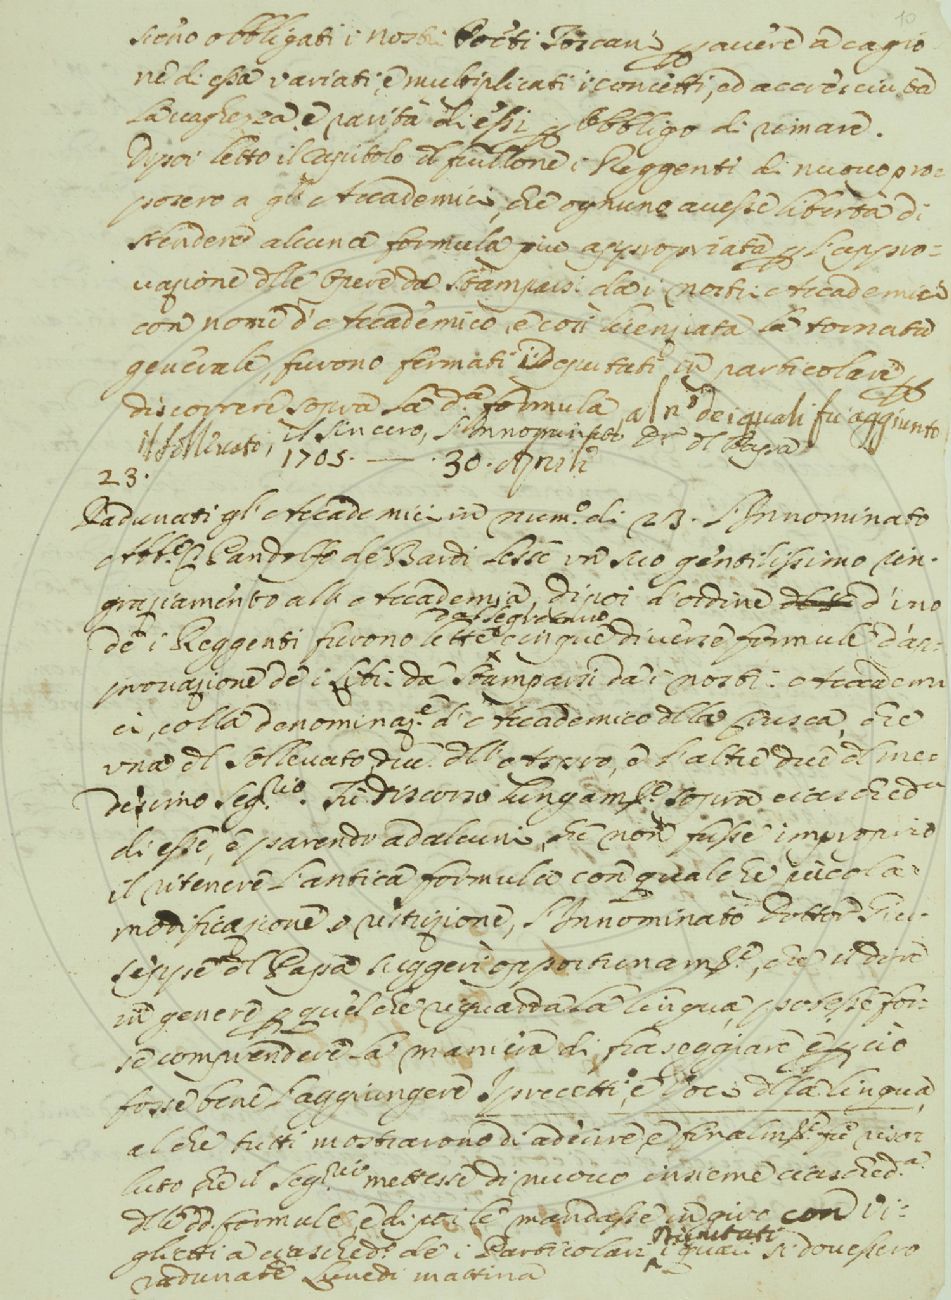 10
sieno obbligati i nostri Poeti Toscani p avere a cagio
ne di essa variati, e multiplicati i concetti, ed accresciuta
la vaghezza, e rarità di essi p obbligo di rimare.
Dipoi letto il Capitolo d fullone i Reggenti di nuovo pro-
posero a gl'Accademici, che ognuno avesse libertà di
stendere alcuna formula piu appropriata p l'appro-
vazione dlle Opere da Stamparsi da i nostri Accademici
con nome d'Accademico, e così licenziata la tornata
generale, furono fermati i Deputati in particolare p
discorrere sopra la da formula, al n.o dei quali fu aggiunto
il Sollevato, il Sincero, l'Innominato Dr dl Papa
1705. — 30. Aprile
23.
Radunati gl'Accademici in num.o di 23. l'Innominato
Abb.e Pandolfo de Bardi lesse un suo gentilissimo rin-
graziamento all'Accademia, dipoi d'ordine d'uno
de i Reggenti furono lette dal Segretario cinque diverse formule d'ap-
provazione de i libri da Stamparsi da i nostri Accademi
ci, colla denominaz.e d'Accademico dlla Crusca, che
una dl Sollevato due dll'Aspro, e l'altre due dl me-
desimo Seg.rio. Fu discorso lungam.te sopra ciasched.a
di esse, e parendo ad alcuni, che non fusse improprio
il ritenere l'antica formula con qualche piccola
modificazione, o restrizione, l'Innominato Dottor Giu-
seppe dl Papa suggerì opportunam.te, che il dire
in genere p quel che riguarda la lingua, potesse for-
se comprendere la maniera di fraseggiare e p ciò
fosse bene l'aggiungere I precetti, e voci dlla lingua,
al che tutti mostrarono di aderire, e finalm.te fu risol
luto che il Seg.rio mettesse di nuovo insieme ciasched.a
dlle dd. formule, e dipoi le mandasse in giro con vi-
glietti a ciasched.o de i Particolari Deputati i quali si dovessero
radunare Lunedi mattina